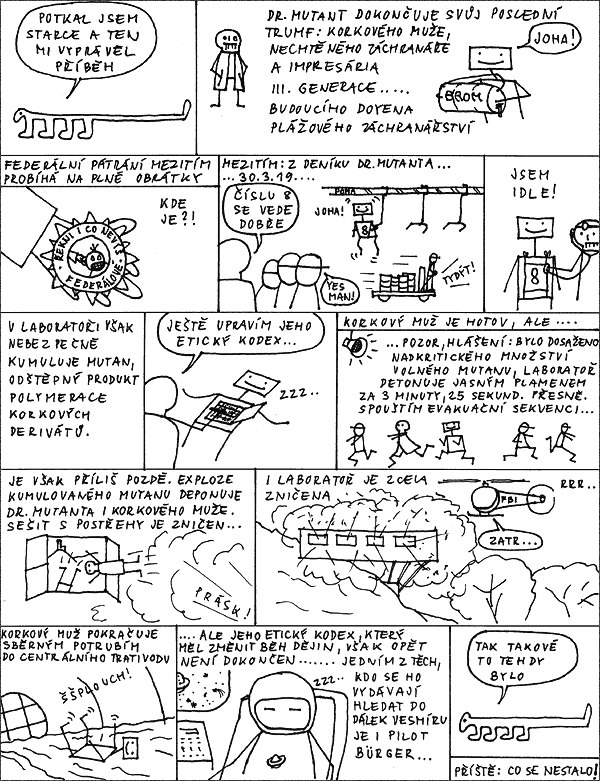 POTKAL JSEM
STARCE A TEN
MI VYPRÁVĚL
PŘÍBĚH
DR. MUTANT DOKONČUJE SVŮJ POSLEDNÍ
TRUMF: KORKOVÉHO MUŽE,
NECHTĚNÉHO ZÁCHRANÁŘE
A IMPRESÁRIA
III. GENERACE.....
BUDOUCÍHO DOYENA
PLÁŽOVÉHO ZÁCHRANÁŘSTVÍ
JOHA!
BROM
FEDERÁLNÍ PÁTRÁNÍ MEZITÍM
PROBÍHÁ NA PLNÉ OBRÁTKY
KDE
JE?!
ŘEKNI I CO NEVÍŠ
FEDERÁLOVĚ
MEZITÍM: Z DENÍKU DR. MUTANTA...
...30.3.19....
ČÍSLU 8
SE VEDE
DOBŘE
JOHA!
POMA
8
YES
MAN!
TYDÝT!
JSEM
IDLE!
8
V LABORATOŘI VŠAK
NEBEZPEČNĚ
KUMULUJE MUTAN,
ODŠTĚPNÝ PRODUKT
POLYMERACE
KORKOVÝCH
DERIVÁTŮ.
JEŠTĚ UPRAVÍM JEHO
ETICKÝ KODEX...
ZZZ..
KORKOVÝ MUŽ JE HOTOV, ALE ....
...POZOR, HLÁŠENÍ: BYLO DOSAŽENO
NADKRITICKÉHO MNOŽSTVÍ
VOLNÉHO MUTANU, LABORATOŘ
DETONUJE JASNÝM PLAMENEM
ZA 3 MINUTY, 25 SEKUND. PŘESNĚ.
SPOUŠTÍM EVAKUAČNÍ SEKVENCI...
JE VŠAK PŘÍLIŠ POZDĚ. EXPLOZE
KUMULOVANÉHO MUTANU DEPONUJE
DR. MUTANTA I KORKOVÉHO MUŽE.
SEŠIT S POSTŘEHY JE ZNIČEN...
PRÁSK!
I LABORATOŘ JE ZCELA
ZNIČENA
FBI
RRR..
ZATR...
KORKOVÝ MUŽ POKRAČUJE
SBĚRNÝM POTRUBÍM
DO CENTRÁLNÍHO TRATIVODU
ŠŠPLOUCH!
....ALE JEHO ETICKÝ KODEX, KTERÝ
MĚL ZMĚNIT BĚH DĚJIN, VŠAK OPĚT
NENÍ DOKONČEN....... JEDNÍM Z TĚCH,
KDO SE HO
VYDÁVAJÍ
HLEDAT DO
DÁLEK VESMÍRU
JE I PILOT
BÜRGER...
ZZZ..
TAK TAKOVÉ
TO TEHDY
BYLO
PŘÍŠTĚ: CO SE NESTALO!